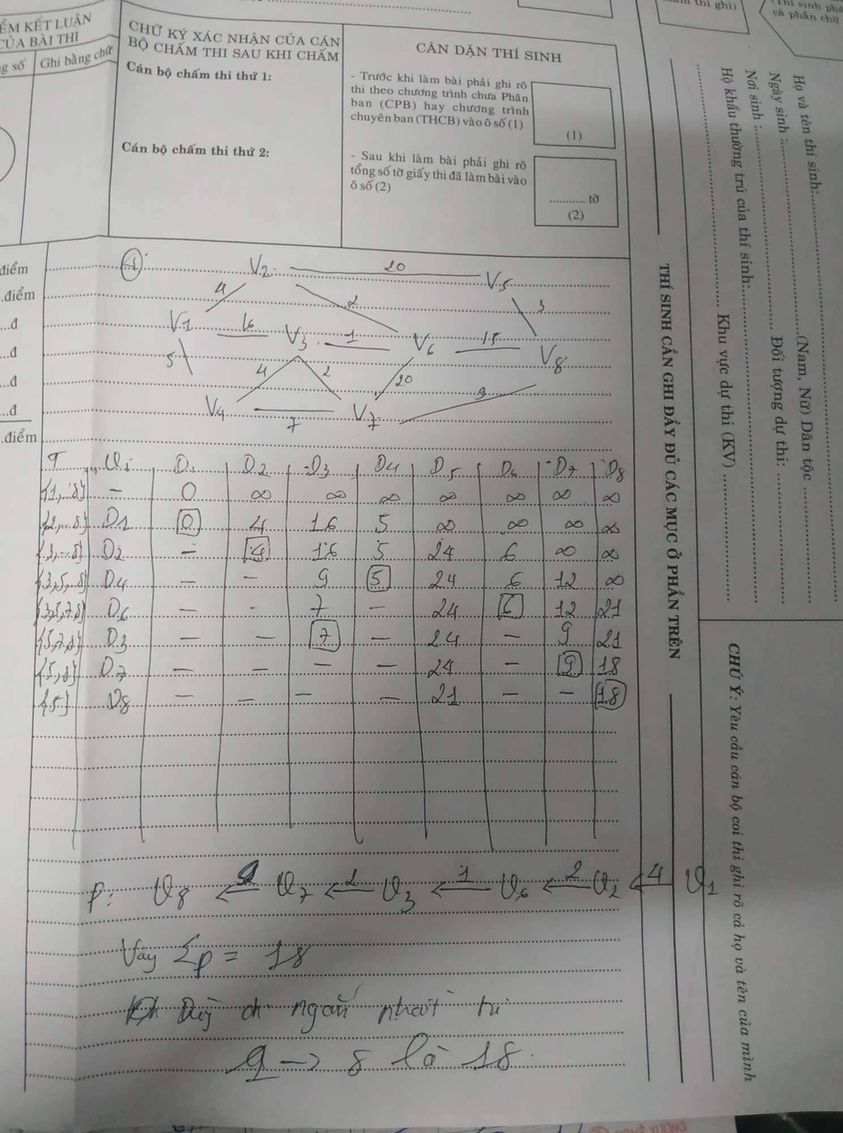 ĐIỂM KẾT LUẬN
CỦA BÀI THI
g số
Ghi bằng chữ
CHỮ KÝ XÁC NHẬN CỦA CÁN
BỘ CHẤM THI SAU KHI CHẤM
Cán bộ chấm thi thứ 1:
Cán bộ chấm thi thứ 2:
CĂN DẶN THÍ SINH
- Trước khi làm bài phải ghi rõ
thi theo chương trình chưa Phân
ban (CPB) hay chương trình
chuyên ban (THCB) vào ô số (1)
(1)
- Sau khi làm bài phải ghi rõ
tổng số tờ giấy thi đã làm bài vào
ô số (2)
............ tờ
(2)
thi ghi)
cả phần chữ
Họ và tên thí sinh:......(Nam, Nữ) Dân tộc ......
Ngày sinh :...... Đối tượng dự thi: ......
Nơi sinh :......
Hộ khẩu thường trú của thí sinh:......
...... Khu vực dự thi (KV) ......
THÍ SINH CẦN GHI ĐẦY ĐỦ CÁC MỤC Ở PHẦN TRÊN
CHÚ Ý: Yêu cầu cán bộ coi thi ghi rõ cả họ và tên của mình
điểm
.điểm
...đ
...đ
...đ
...đ
.điểm
V2 20 V5
4 2 3
V1 16 V3 1 V6 15 V8
5 4 2 20 9
V4 7 V7
T Vi D1 D2 D3 D4 D5 D6 D7 D8
{1,..8} - 0 ∞ ∞ ∞ ∞ ∞ ∞ ∞
{2,..8} D1 0 4 16 5 ∞ ∞ ∞ ∞
{3,..8} D2 - 4 16 5 24 6 ∞ ∞
{3,5,..8} D4 - - 9 5 24 6 12 ∞
{3,5,7,8} D6 - - 7 - 24 6 12 21
{5,7,8} D3 - - 7 - 24 - 9 21
{5,8} D7 - - - - 24 - 9 18
{5} D8 - - - - 21 - - 18
P: V8 ←9 V7 ←2 V3 ←1 V6 ←2 V2 ←4 V1
Vậy Σp = 18
ngắn nhất từ
1 → 8 là 18.